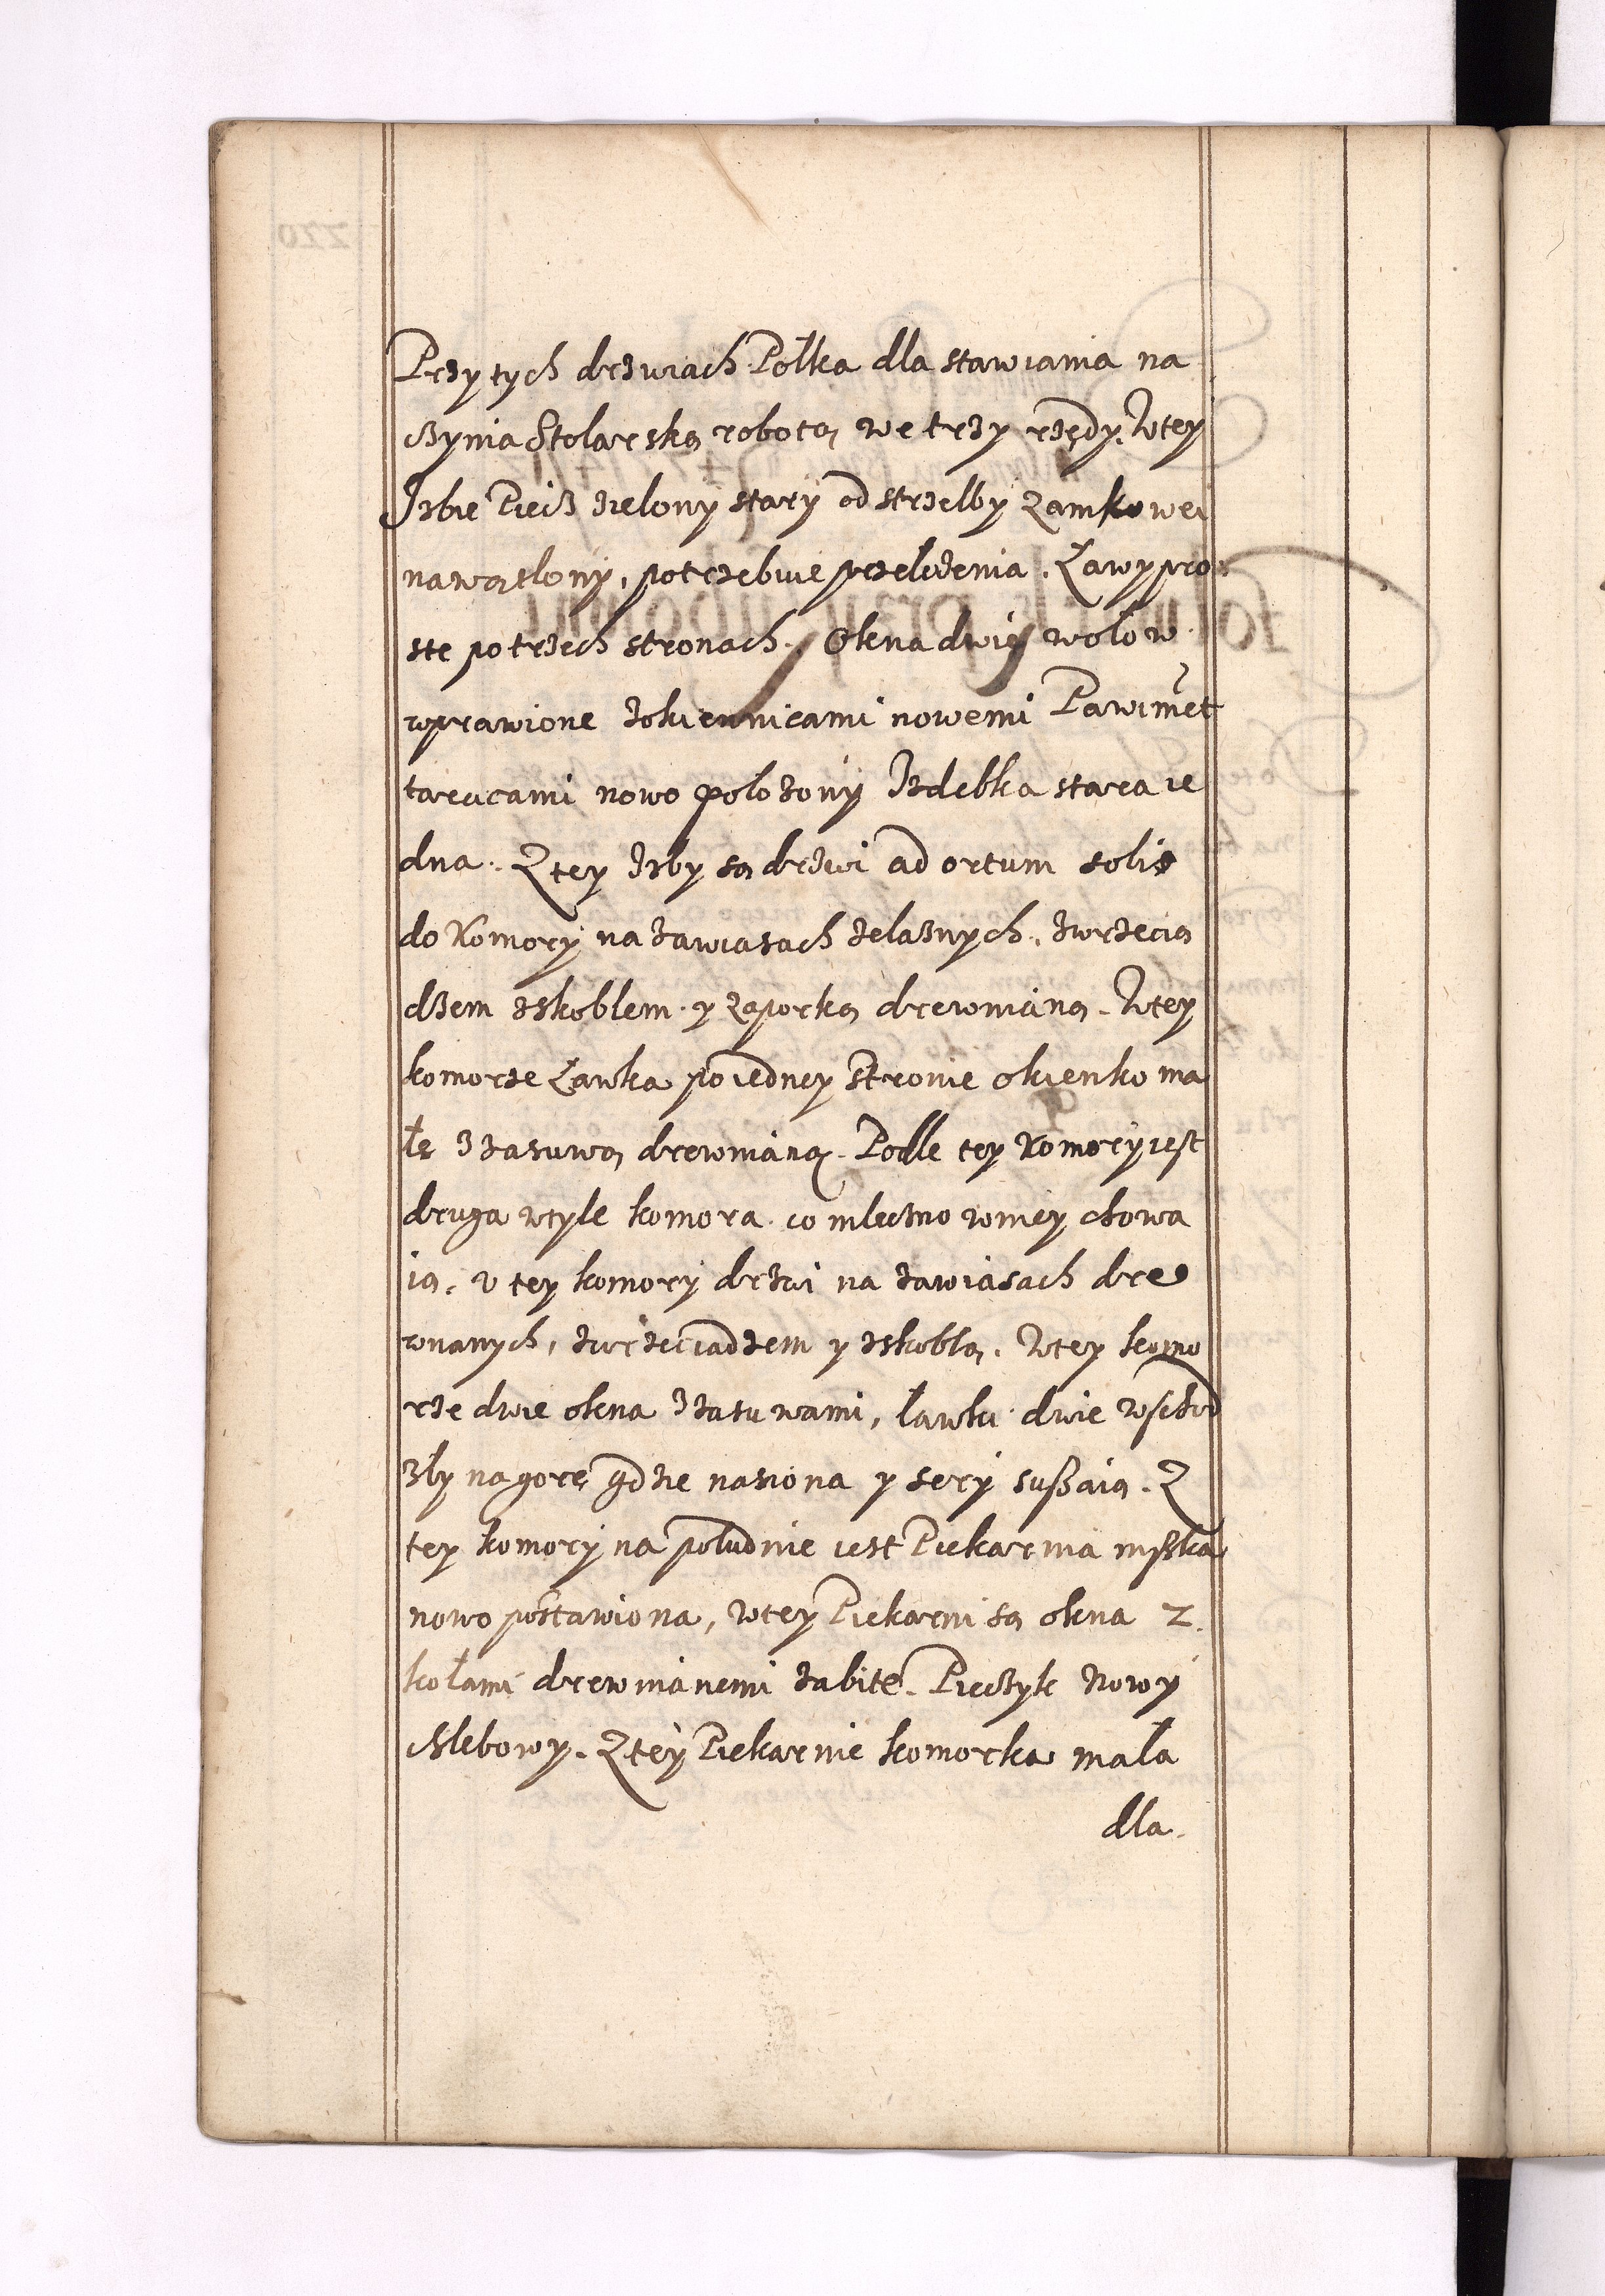 Przy tych drzwiach Połka dla stawiania na
czynia Stolarską robotą we trzy rzędy. Wtey
Izbie Piecz zielony stary od strzelby zamkowei
nawąslony, potrzebuie przełożenia. Ławy pro
ste po trzech stronach. Okna dwie wołow
wprawione zokiennicami nowemi Pawimẽt
tarcicami nowo położony Izdebka stara ie
dna. Ztey Izby są drzwi ad ortum solis
do Komory na zawiasach żelaznych. zwrzecią
dzem zskoblem y zaporką drewnianą. Wtey
komorze Ławka po iedney Stronie okienko ma
łe zzasuwą drewnianą. Podle tey Komory iest
druga wtyle komora co mleczno wniey chowa
ią. v tey komory drzwi na zawiasach dre
wnanych, zwrzeciadzem y zskoblą. Wtey komo
rze dwie okna zzasuwami, ławki dwie wschod
zły na gorę gdzie nasiona y sery suszaią. Z
tey komory na południe iest Piekarnia niska
nowo postawiona, wtey Piekarni są okna 2.
kołami drewnianemi zabite. Pieczyk Nowy
chlebowy. Ztey Piekarnie komorka mała
dla.
220